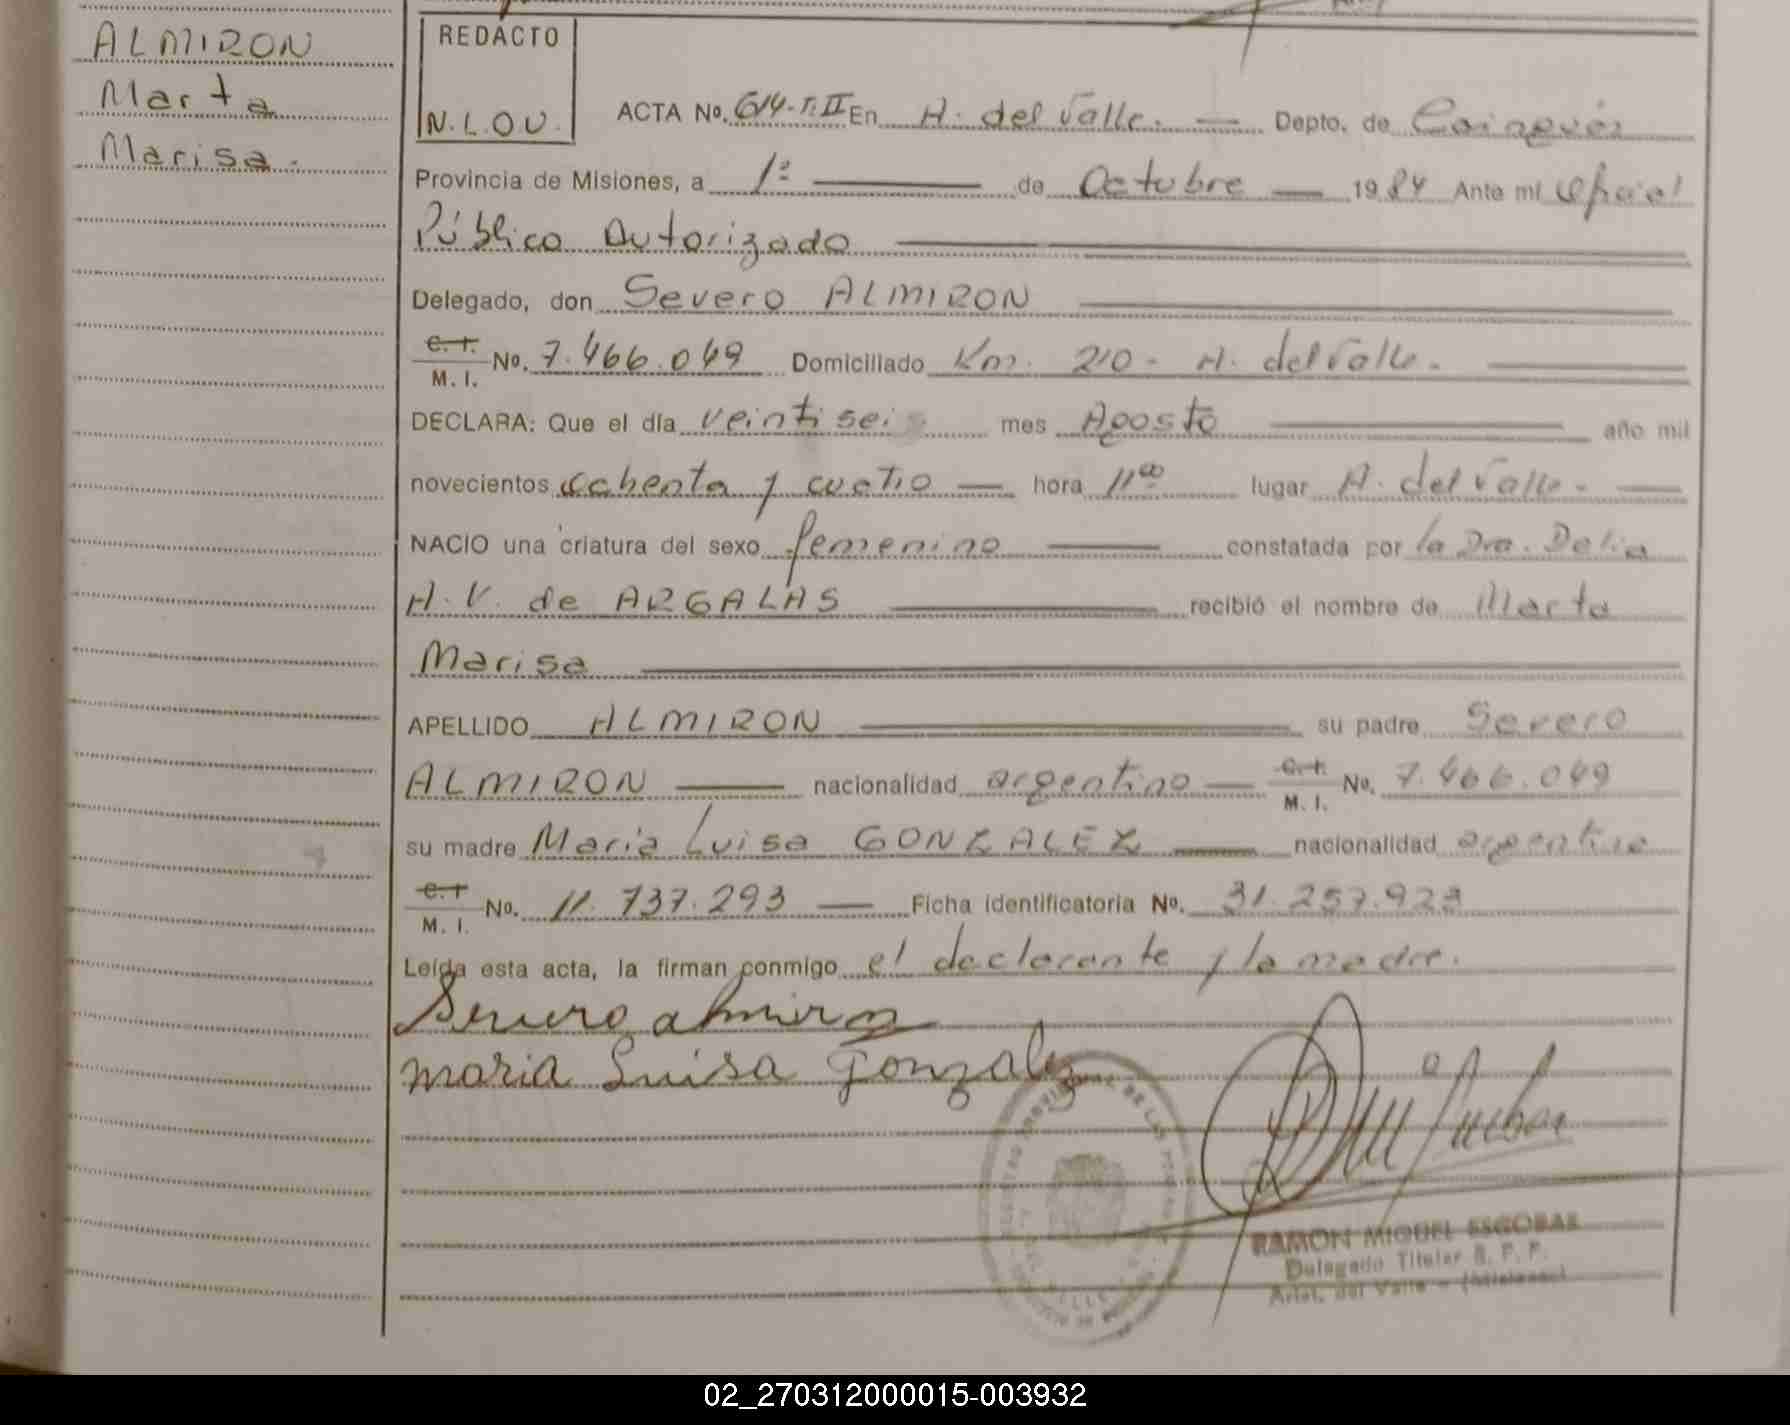 ALMIRON
Marta
Marisa.
REDACTO
N.L.O.V.
ACTA No. 614-T.II En A. del Valle. — Depto. de Cainguás
Provincia de Misiones, a 1º — de Octubre — 1984 Ante mi Oficial
Público Autorizado
Delegado, don Severo ALMIRON
C. I. M. I. No. 7.466.049 Domiciliado Km. 210 - A. del Valle.
DECLARA: Que el día veintiseis mes Agosto año mil
novecientos ochenta y cuatro — hora 11ºº lugar A. del Valle. —
NACIO una criatura del sexo femenino — constatada por la Dra. Delia
A. V. de ARGALAS — recibió el nombre de Marta
Marisa
APELLIDO ALMIRON — su padre Severo
ALMIRON — nacionalidad argentino — C. I. M. I. No. 7.466.049
su madre Maria Luisa GONZALEZ — nacionalidad argentina
C. I M. I. No. 11.737.293 — Ficha identificatoria No. 31.257.923
Leída esta acta, la firman conmigo el declarante y la madre.
Severo almiron
maria Luisa Gonzalez
REGISTRO PROVINCIAL DE LAS PERSONAS
RAMON MIGUEL ESCOBAR
Delegado Titular R. P. P.
Arist. del Valle - (Misiones)
02_270312000015-003932